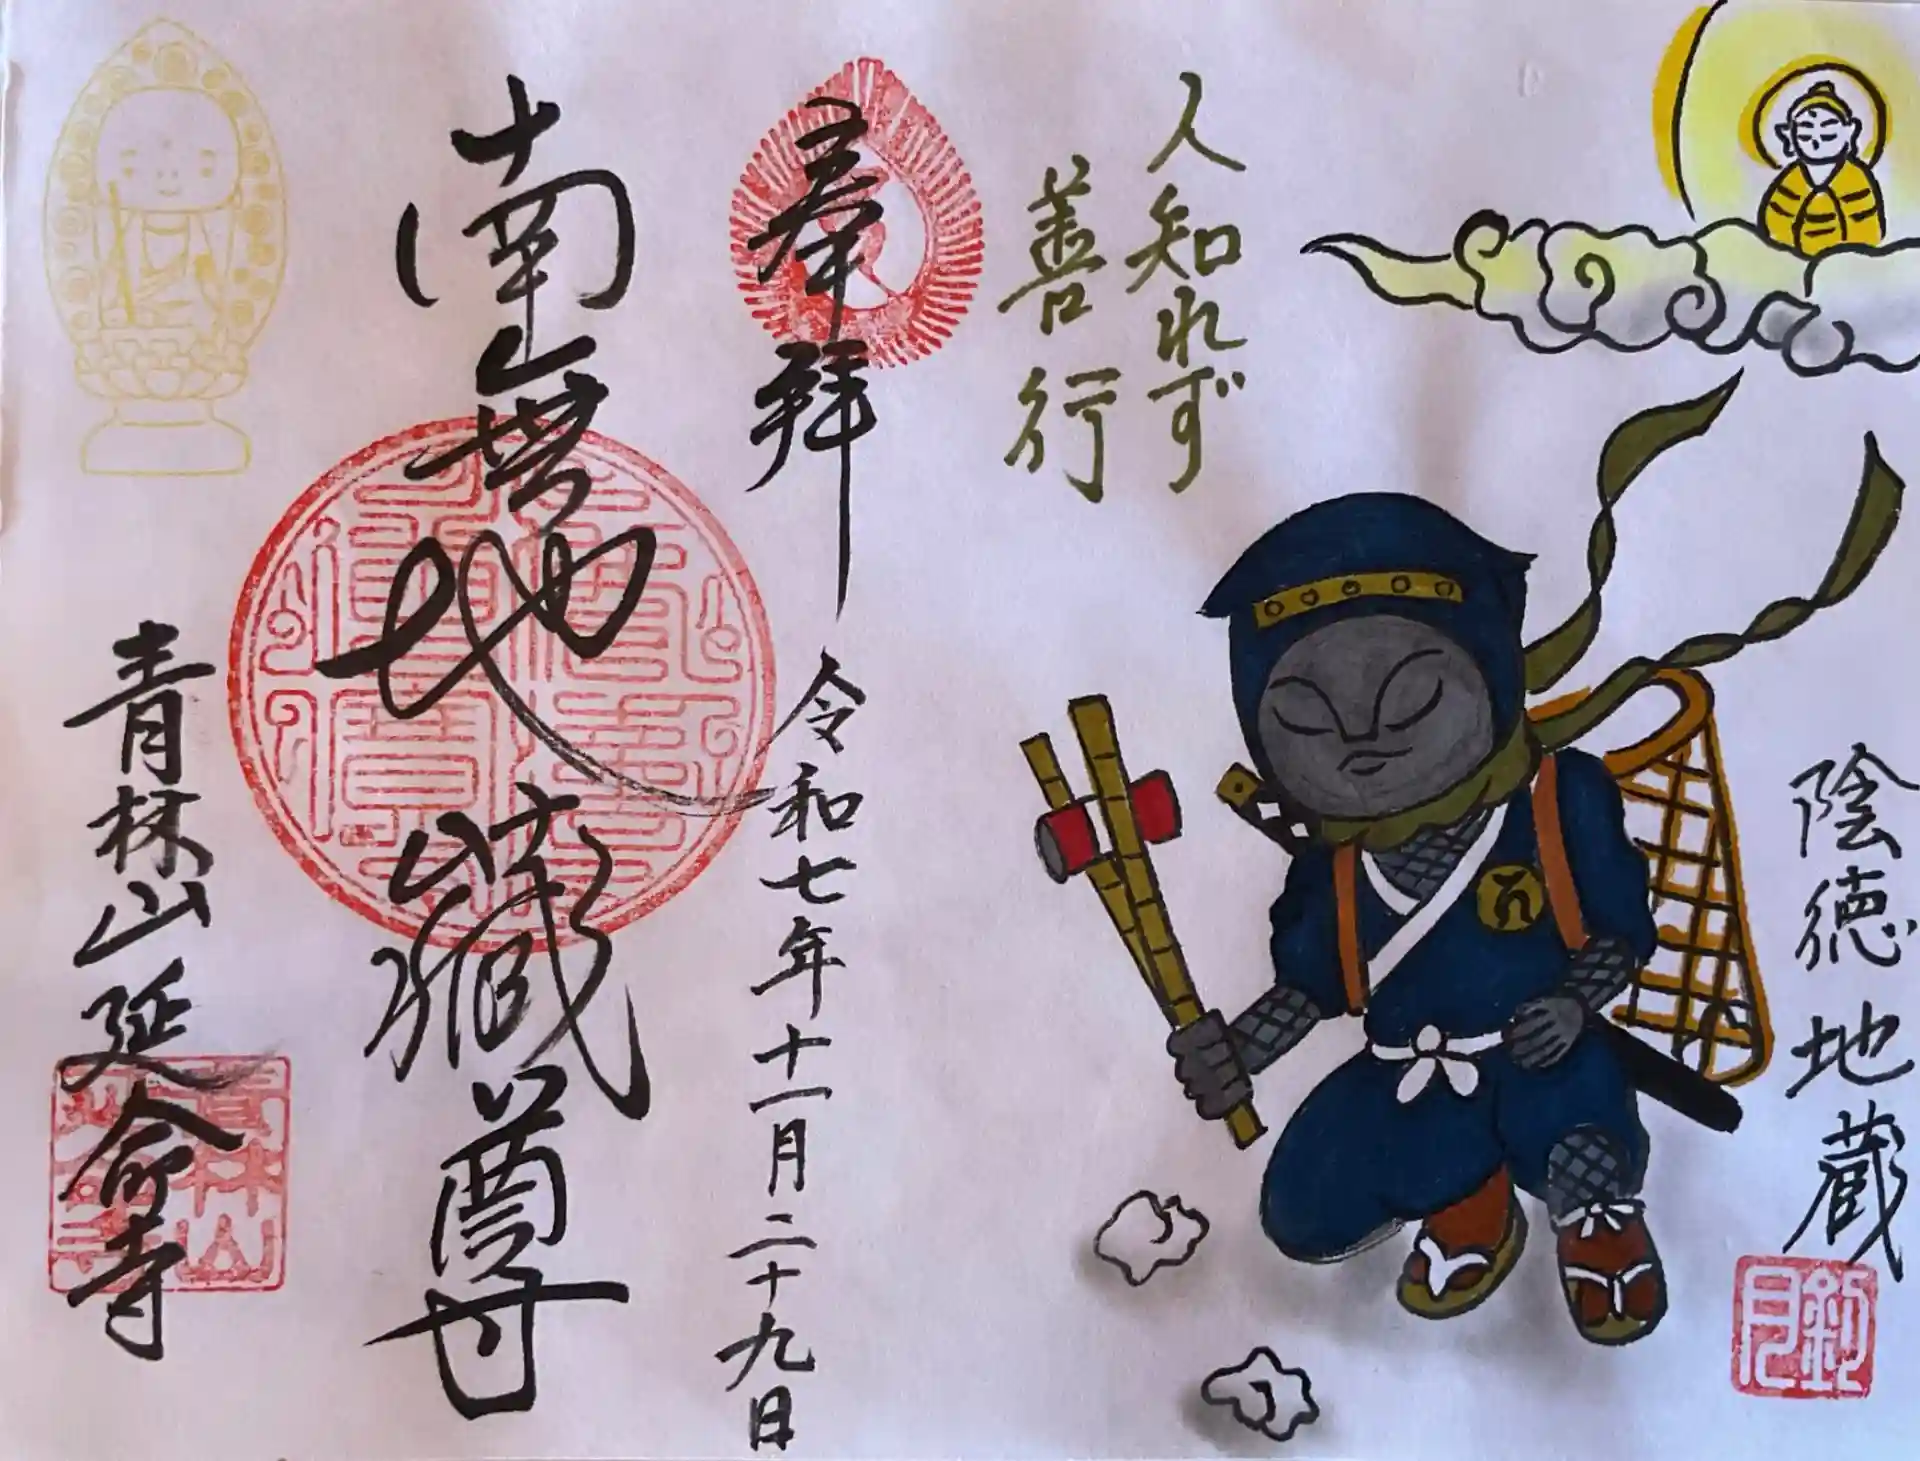 陰徳地蔵
人知れず
善行
奉拝
令和七年十一月二十九日
南無地蔵尊
青林山延命寺